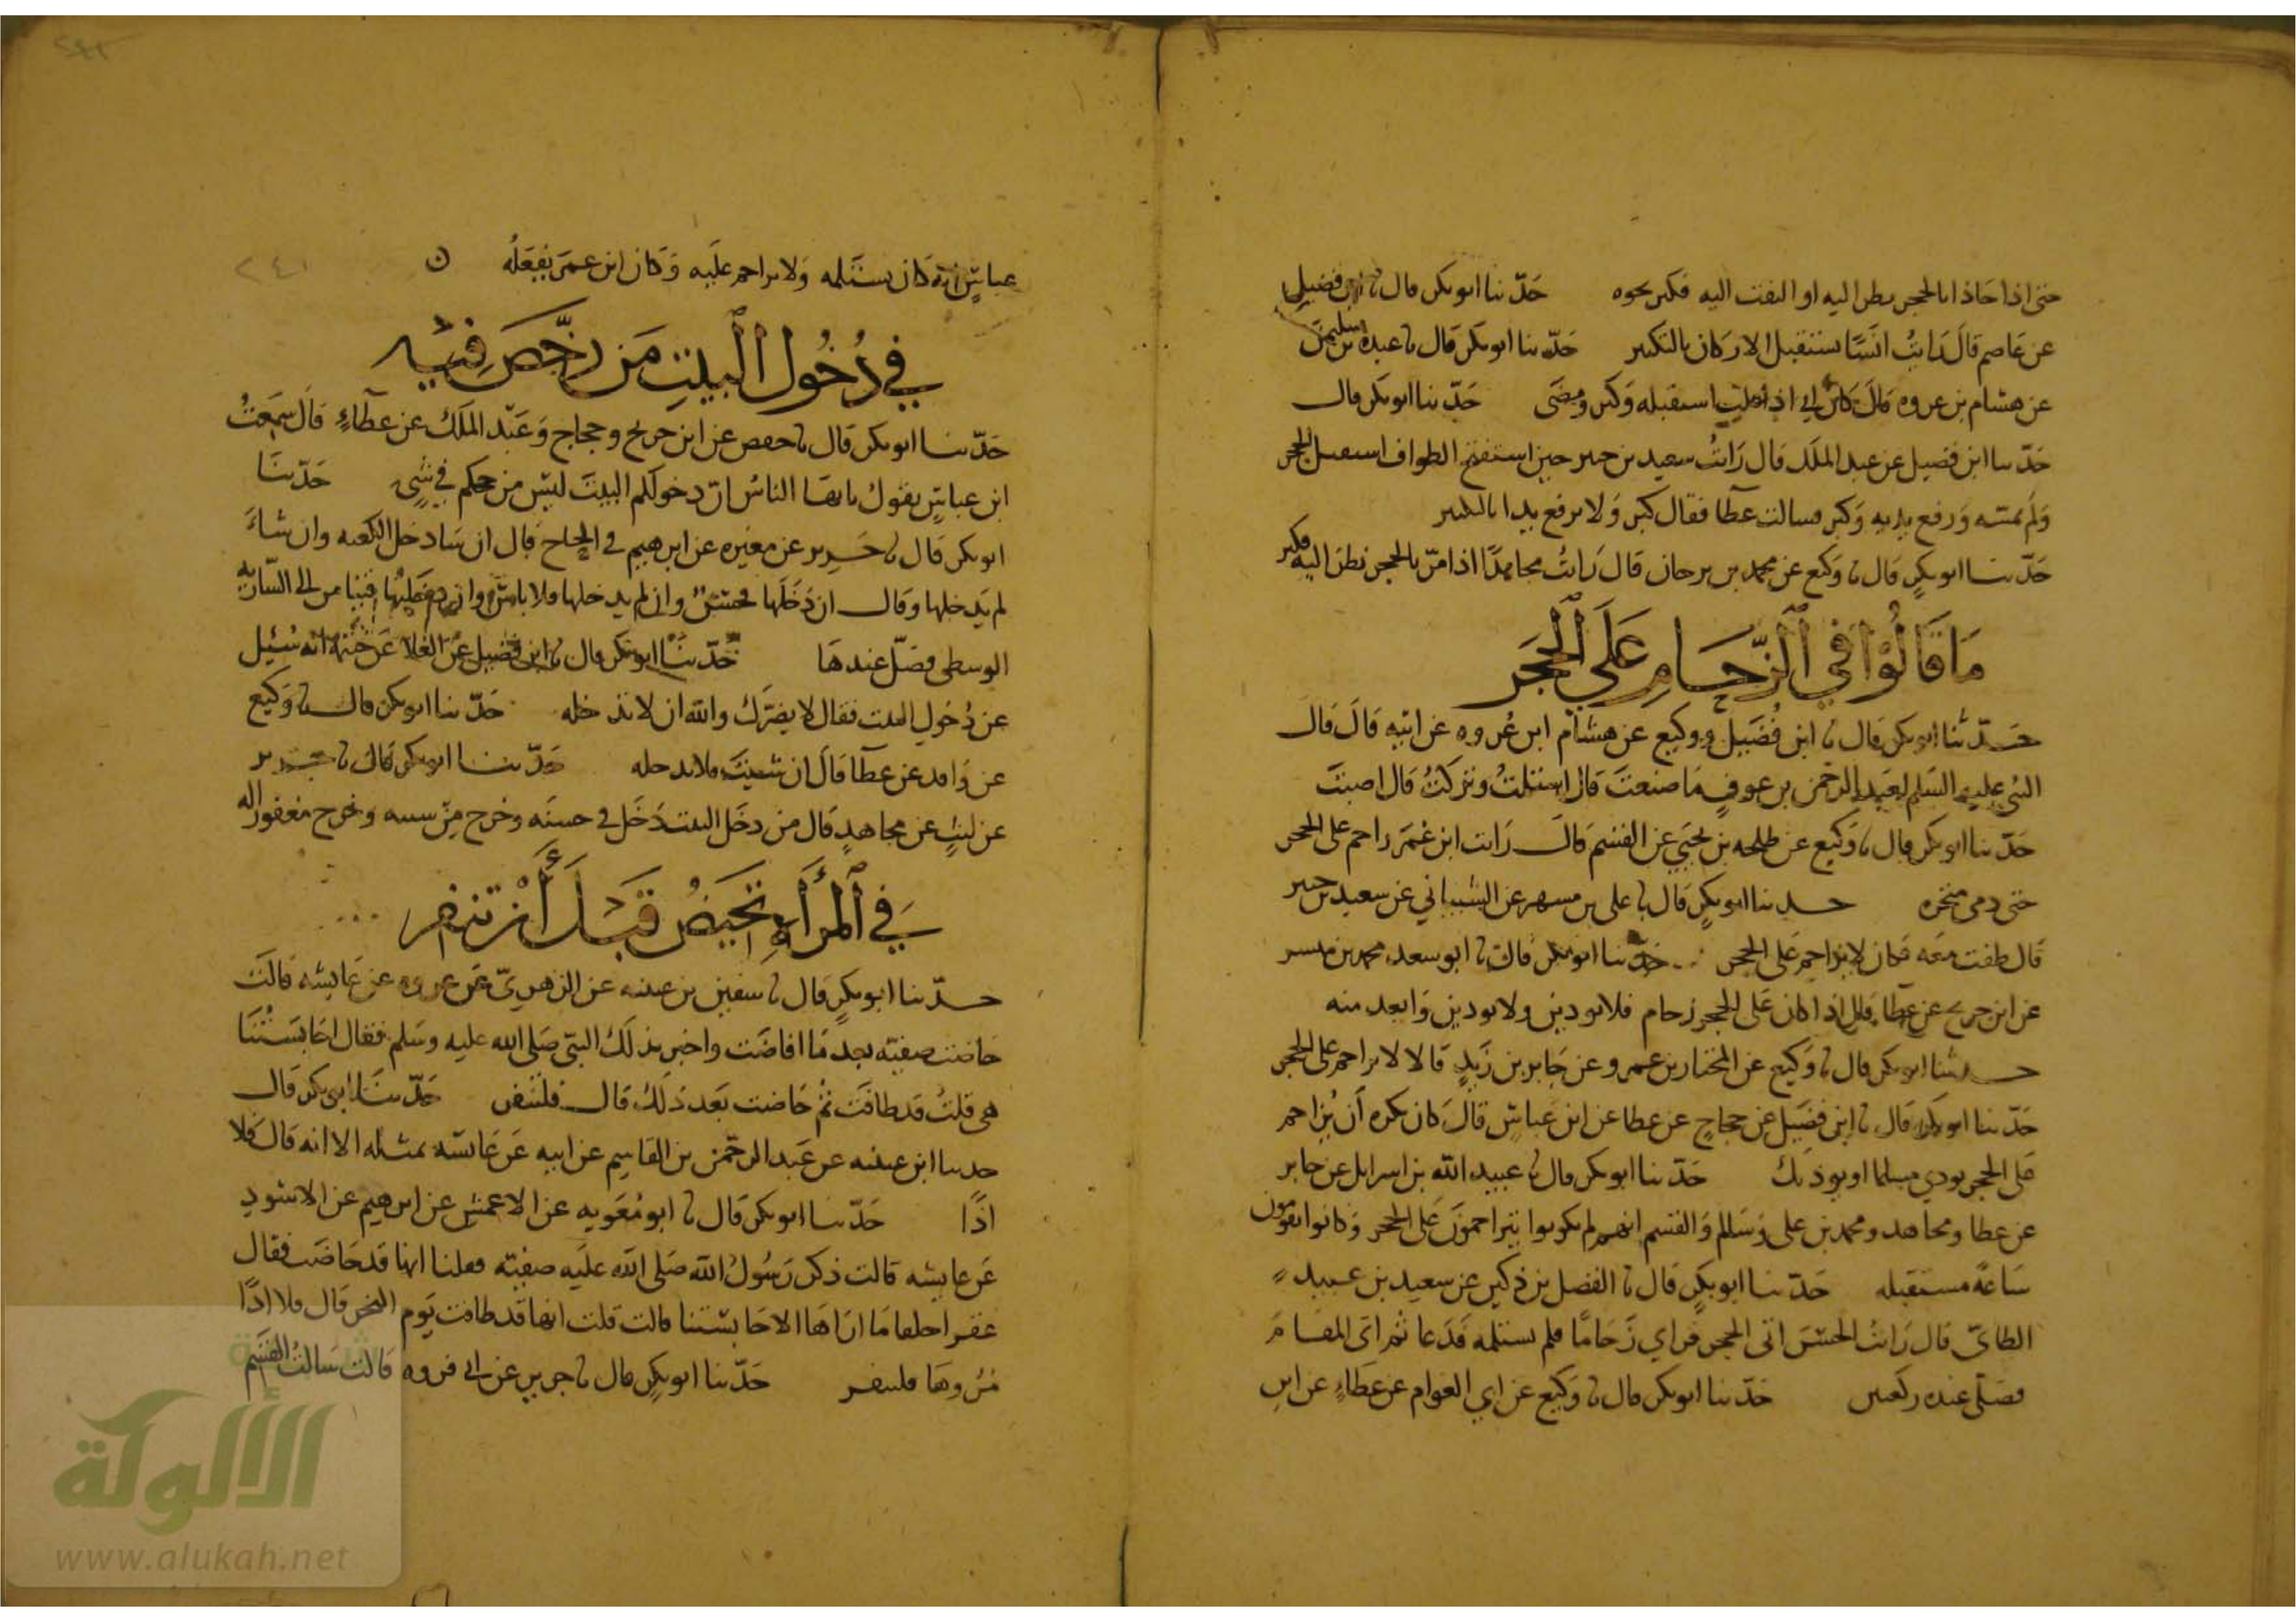 حتى اذا حاذا بالحجر نظر اليه او التفت اليه فكبر نحوه حدثنا ابو بكر قال نا ابن فضيل
عن عاصم قال رايت انسا يستقبل الاركان بالتكبير حدثنا ابو بكر قال نا عبده بن سليمن
عن هشام بن عروه قال كان ابي اذا استقبله وكبر ومضى حدثنا ابو بكر قال
حدثنا ابن فضيل عن عبد الملك قال رايت سعيد بن جبير حين استفتح الطواف استقبل الحجر
ولم يمسه ورفع يديه وكبر فسالت عطا فقال كبر ولا ترفع يدا بالتكبير
حدثنا ابو بكر قال نا وكيع عن محمد بن برجان قال رايت مجاهدا اذا مر بالحجر نظر اليه فكبر
ما قالوا في الزحام على الحجر
حدثنا ابو بكر قال نا ابن فضيل ووكيع عن هشام ابن عروه عن ابيه قال قال
النبي عليه السلم لعبد الرحمن بن عوف ما صنعت قال استلمت وتركت قال اصبت
حدثنا ابو بكر قال نا وكيع عن طلحه بن يحيى عن القسم قال رايت ابن عمر زاحم على الحجر
حتى دمى منخره حدثنا ابو بكر قال نا على بن مسهر عن الشيباني عن سعيد بن جبير
قال طفت معه فكان لا يزاحم على الحجر حدثنا ابو بكر قال نا ابو سعد محمد بن ميسر
عن ابن جريج عن عطا قال اذا كان على الحجر زحام فلا توذين ولا توذين وابعد منه
حدثنا ابو بكر قال نا وكيع عن المختار بن عمرو عن جابر بن زيد قالا لا تزاحم على الحجر
حدثنا ابو بكر قال نا ابن فضيل عن حجاج عن عطا عن ابن عباس قال كان يكره ان يزاحم
على الحجر يوذي مسلما او يوذيك حدثنا ابو بكر قال نا عبيد الله بن اسرايل عن جابر
عن عطا ومجاهد ومحمد بن على وسالم والقسم انهم لم يكونوا يتزاحمون على الحجر وكانوا يقومون
ساعه مستقبله حدثنا ابو بكر قال نا الفضل بن دكين عن سعيد بن عبيد
الطائي قال رايت الحسن اتى الحجر فراي زحاما فلم يستلمه فدعا ثم اتى المقام
فصلى عنده ركعتين حدثنا ابو بكر قال نا وكيع عن ابي العوام عن عطاء عن ابن
٢٤١
عباس انه كان يستلمه ولا يزاحم عليه وكان ابن عمر يفعله ن
في دخول البيت من رخص فيه
حدثنا ابو بكر قال نا حفص عن ابن جريج وحجاج وعبد الملك عن عطاء قال سمعت
ابن عباس يقول يايها الناس ان دخولكم البيت ليس من حجكم في شي حدثنا
ابو بكر قال نا جرير عن مغيره عن ابرهيم في الحاج قال ان شا دخل الكعبه وان شاء
لم يدخلها وقال ان دخلها فحسن وان لم يدخلها فلا باس وان دخلتها من الى الساريه
الوسطى فصل عندها حدثنا ابو بكر قال نا ابن فضيل عن العلا عن خيثمه انه سئيل
عن دخول البيت فقال لا يضرك والله ان لا تدخله حدثنا ابو بكر قال نا وكيع
عن واقد عن عطا قال ان شيت فلا تدخله حدثنا ابو بكر قال نا جرير
عن ليث عن مجاهد قال من دخل البيت دخل في حسنه وخرج من سيئه وخرج مغفورا له
في المرأه تحيض قبل أن تنفر
حدثنا ابو بكر قال نا سفين بن عيينه عن الزهري عن عروه عن عايشه قالت
حاضت صفيه بعد ما افاضت واخبر بذلك النبي صلى الله عليه وسلم فقال احابستنا
هى قلت قد طافت ثم حاضت بعد ذلك قال فلتنفر حدثنا ابو بكر قال
حدثنا ابن عيينه عن عبد الرحمن بن القاسم عن ابيه عن عايشه بمثله الا انه قال فلا
اذا حدثنا ابو بكر قال نا ابو معويه عن الاعمش عن ابرهيم عن الاسود
عن عايشه قالت ذكر رسول الله صلى الله عليه صفيه فقلنا انها قد حاضت فقال
عقرا حلقا ما اراها الا حابستنا قالت قلت انها قد طافت يوم النحر قال فلا اذا
مروها فلتنفر حدثنا ابو بكر قال نا جرير عن ابي فروه قالت سالت القسم
الألوكة
www.alukah.net